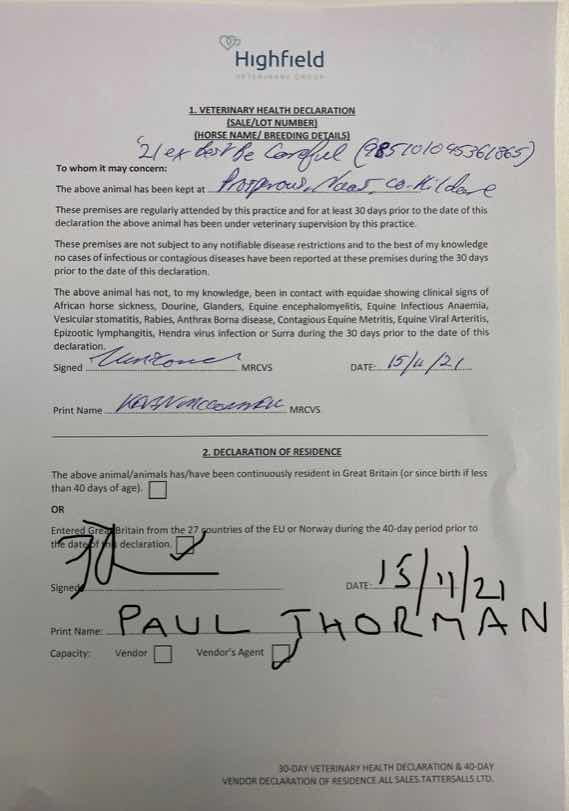 Highfield
VETERINARY GROUP
1. VETERINARY HEALTH DECLARATION
(SALE/LOT NUMBER)
(HORSE NAME/ BREEDING DETAILS)
'21 ex Best Be Careful (985101045361865)
To whom it may concern:
The above animal has been kept at Prosperous, Naas, Co. Kildare
These premises are regularly attended by this practice and for at least 30 days prior to the date of this
declaration the above animal has been under veterinary supervision by this practice.
These premises are not subject to any notifiable disease restrictions and to the best of my knowledge
no cases of infectious or contagious diseases have been reported at these premises during the 30 days
prior to the date of this declaration.
The above animal has not, to my knowledge, been in contact with equidae showing clinical signs of
African horse sickness, Dourine, Glanders, Equine encephalomyelitis, Equine Infectious Anaemia,
Vesicular stomatitis, Rabies, Anthrax Borna disease, Contagious Equine Metritis, Equine Viral Arteritis,
Epizootic lymphangitis, Hendra virus infection or Surra during the 30 days prior to the date of this
declaration.
Signed MRCVS DATE: 15/11/21
Print Name MRCVS
2. DECLARATION OF RESIDENCE
The above animal/animals has/have been continuously resident in Great Britain (or since birth if less
than 40 days of age).
OR
Entered Great Britain from the 27 countries of the EU or Norway during the 40-day period prior to
the date of this declaration.
Signed DATE: 15/11/21
Print Name: PAUL THORMAN
Capacity: Vendor Vendor's Agent
30-DAY VETERINARY HEALTH DECLARATION & 40-DAY
VENDOR DECLARATION OF RESIDENCE.ALL SALES.TATTERSALLS LTD.